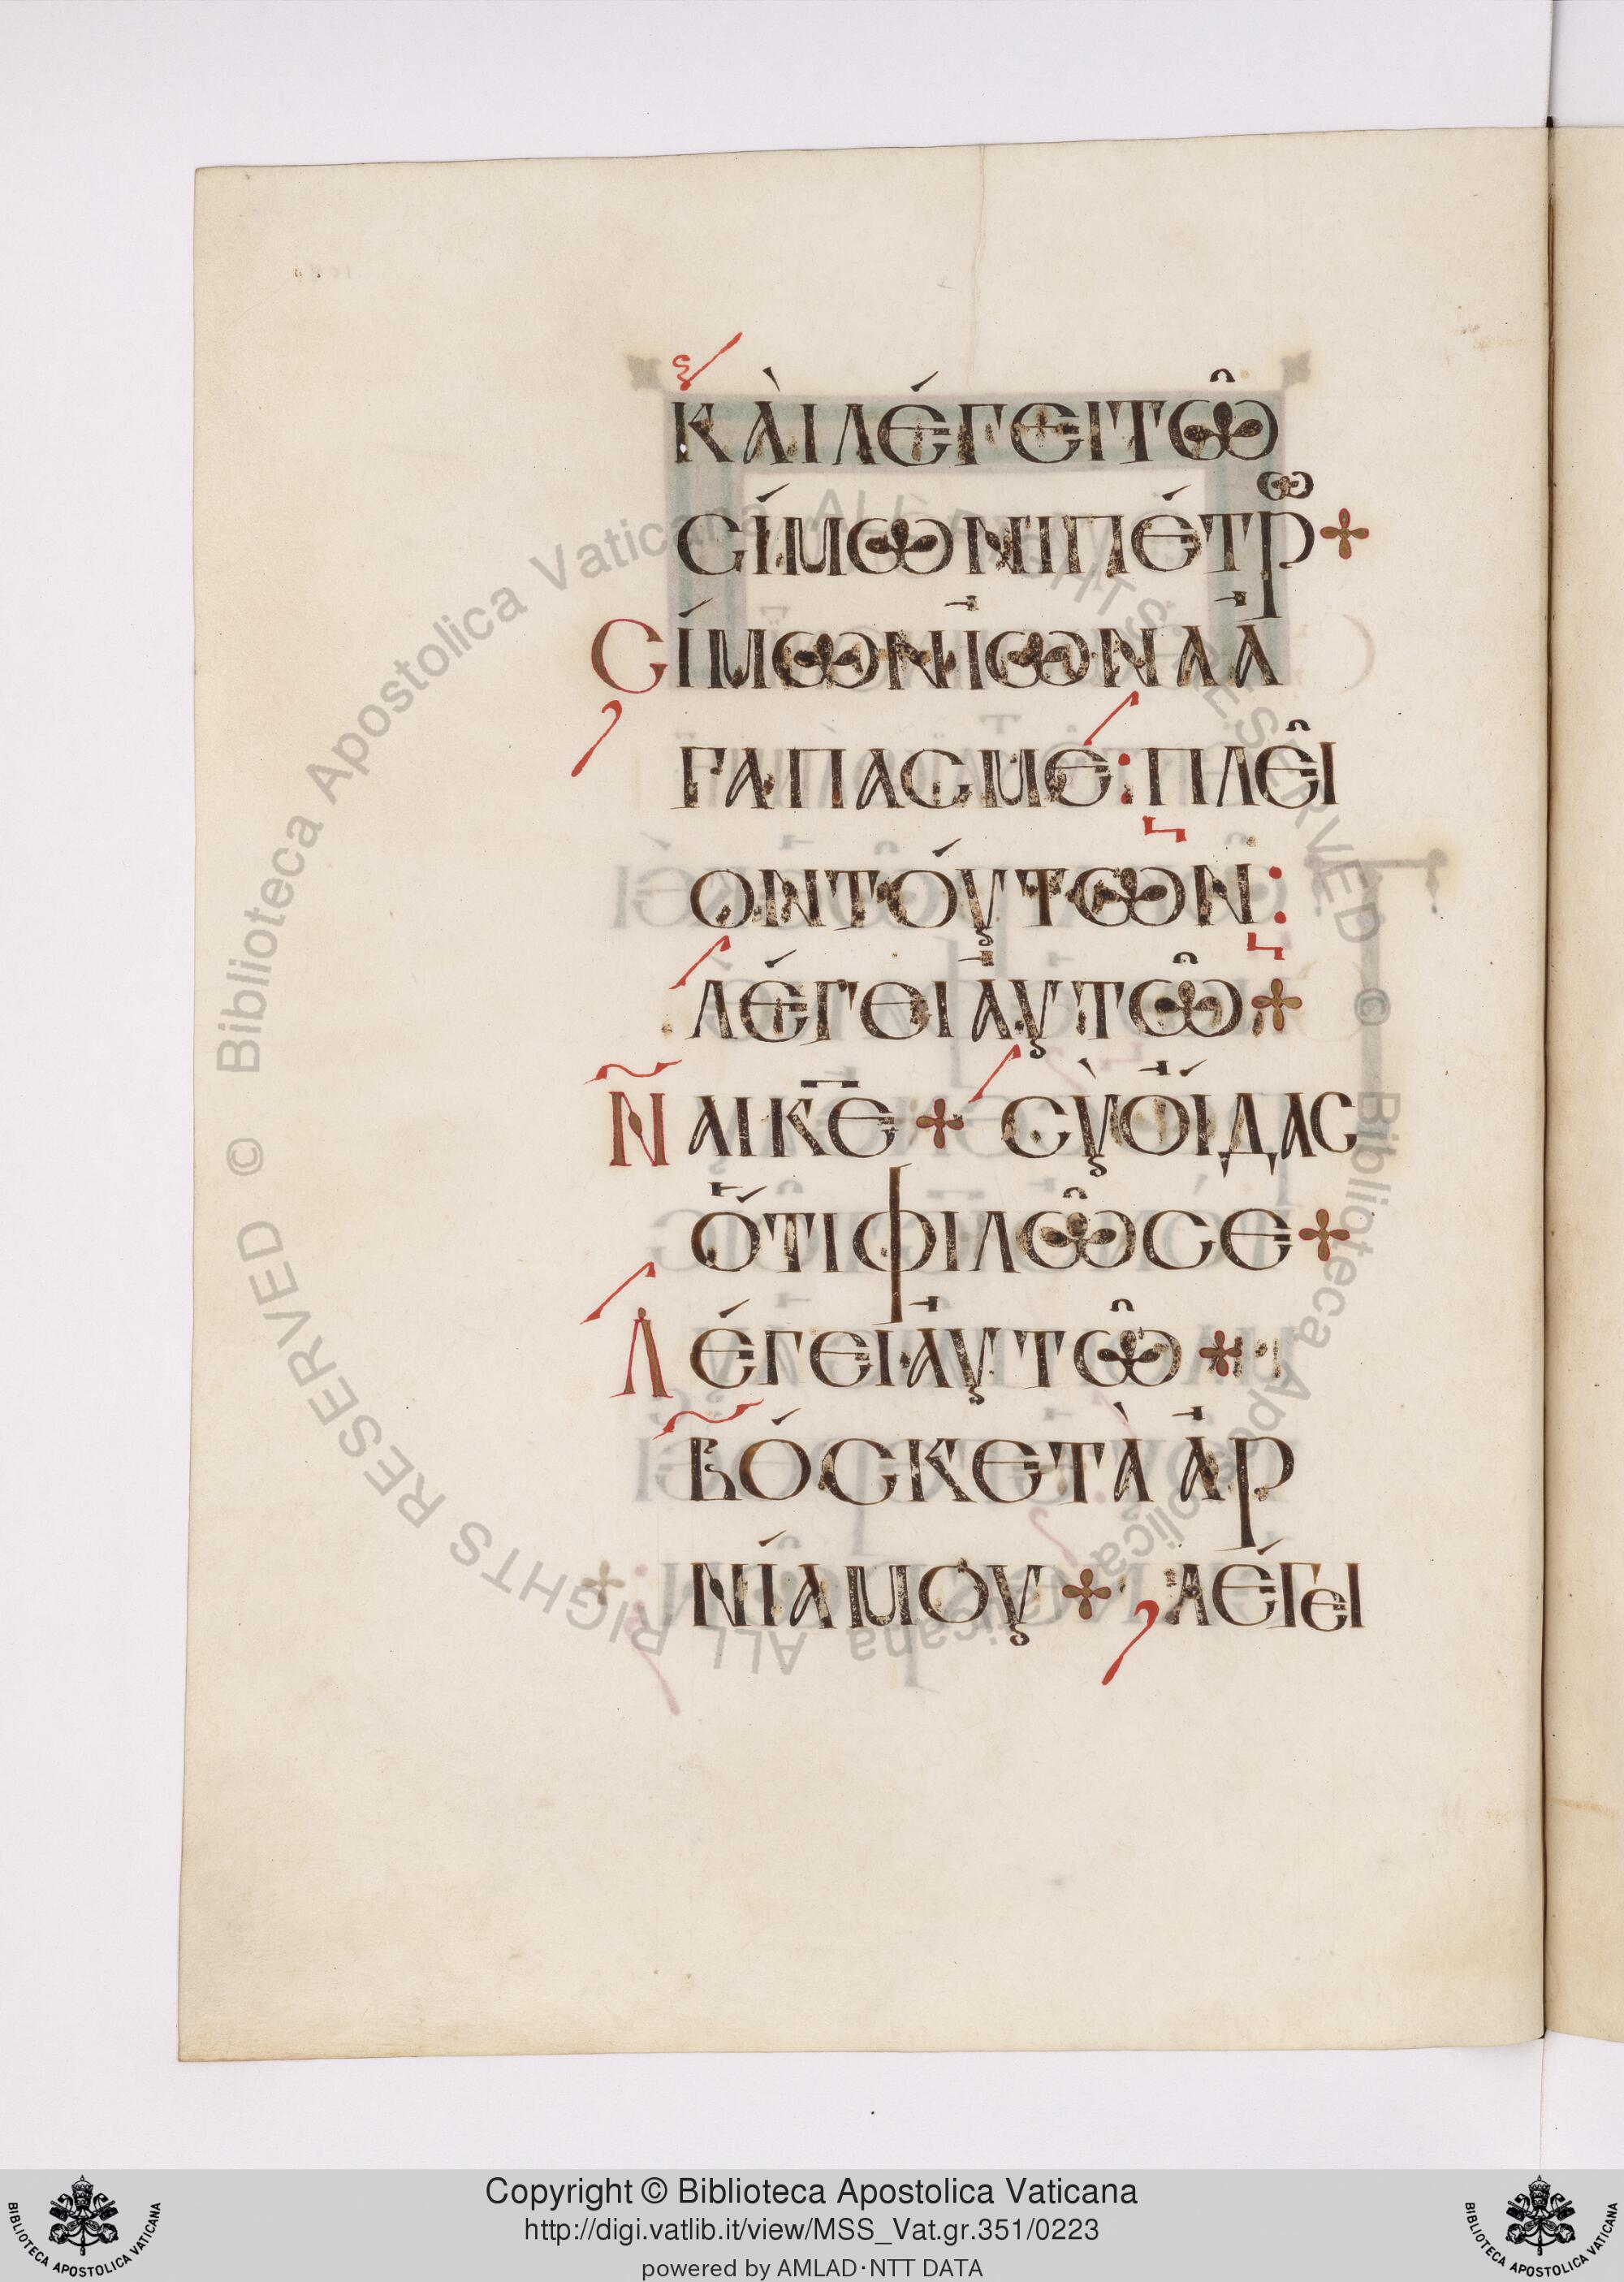 ΚΑῚ ΛΈΓΕΙ ΤΩ͂
ϹΊΜΩΝΙ ΠΈΤΡΩ +
ϹΊΜΩΝ ἸΩΝΑ ἈΓΑ
ΓΑΠΑϹ ΜΕ : ΠΛΕΙ͂
ΟΝ ΤΟΎΤΩΝ :
ΛΈΓΕΙ ἈΥΤΩ͂ +
ΝΑΙ Κ̅Ε̅ + ϹῪ ὈΊΔΑϹ
ὍΤΙ ΦΙΛΩ͂ ϹΕ +
ΛΈΓΕΙ ἈΥΤΩ͂ +
ΒΌϹΚΕ ΤᾺ ἈΡ
ΝΊΑ ΜΟΥ + ΛΈΓΕΙ
© Biblioteca Apostolica Vaticana ALL RIGHTS RESERVED © Biblioteca Apostolica Vaticana ALL RIGHTS RESERVED
Copyright © Biblioteca Apostolica Vaticana
http://digi.vatlib.it/view/MSS_Vat.gr.351/0223
powered by AMLAD·NTT DATA
BIBLIOTECA APOSTOLICA VATICANA
BIBLIOTECA APOSTOLICA VATICANA